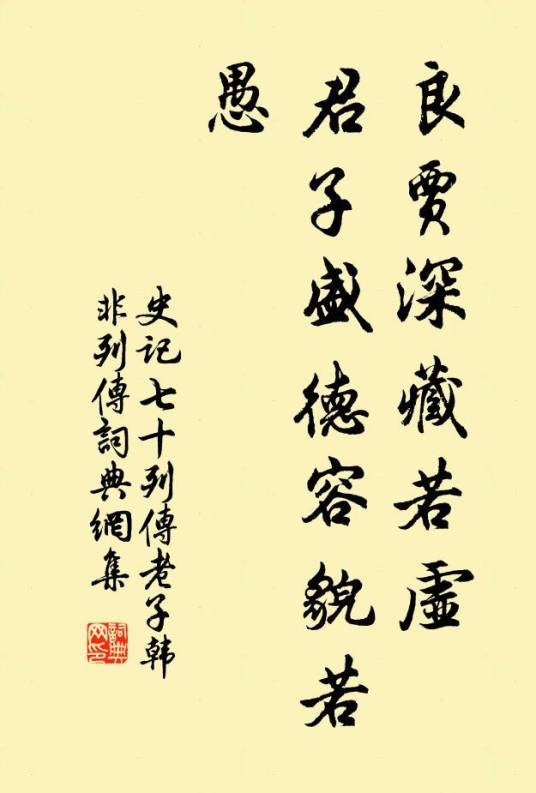 良賈深藏若虛
君子盛德容貌若
愚
史记七十列傳老子韩
非列傳詞典網集
詞典网印